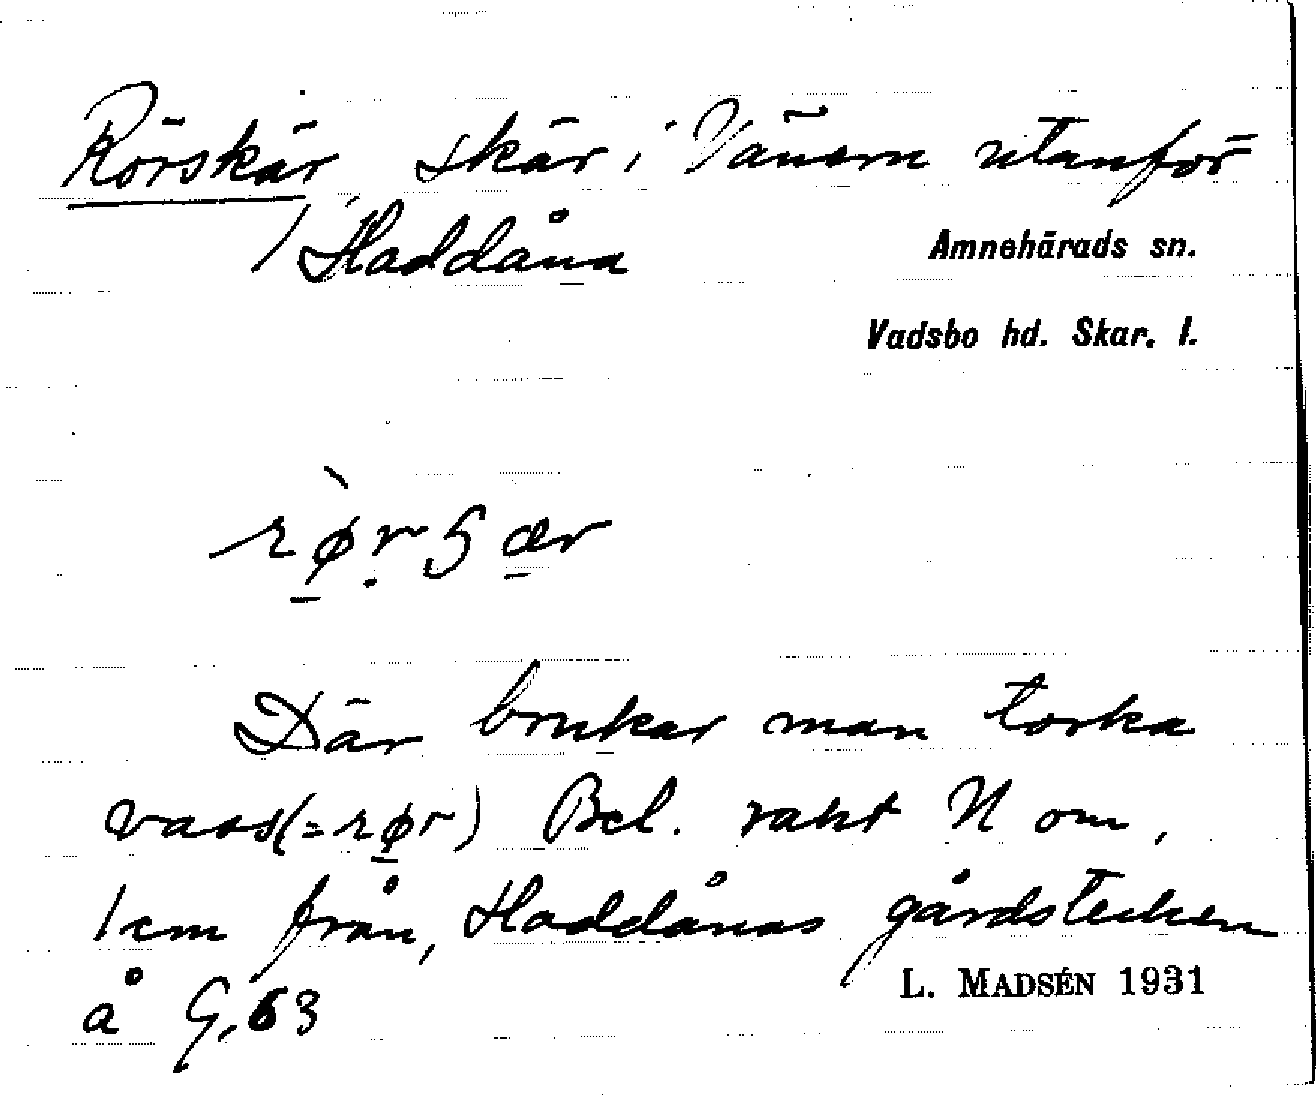 Rörskär, skär i Vänern utanför
/ Haddåna
Amnehärads sn.
Vadsbo hd. Skar. l.
Där brukar man torka
vass(=rør) Bel. rakt N om,
1 cm från, Haddånas gårdstecken
å G, 63
L. MADSÉN 1931